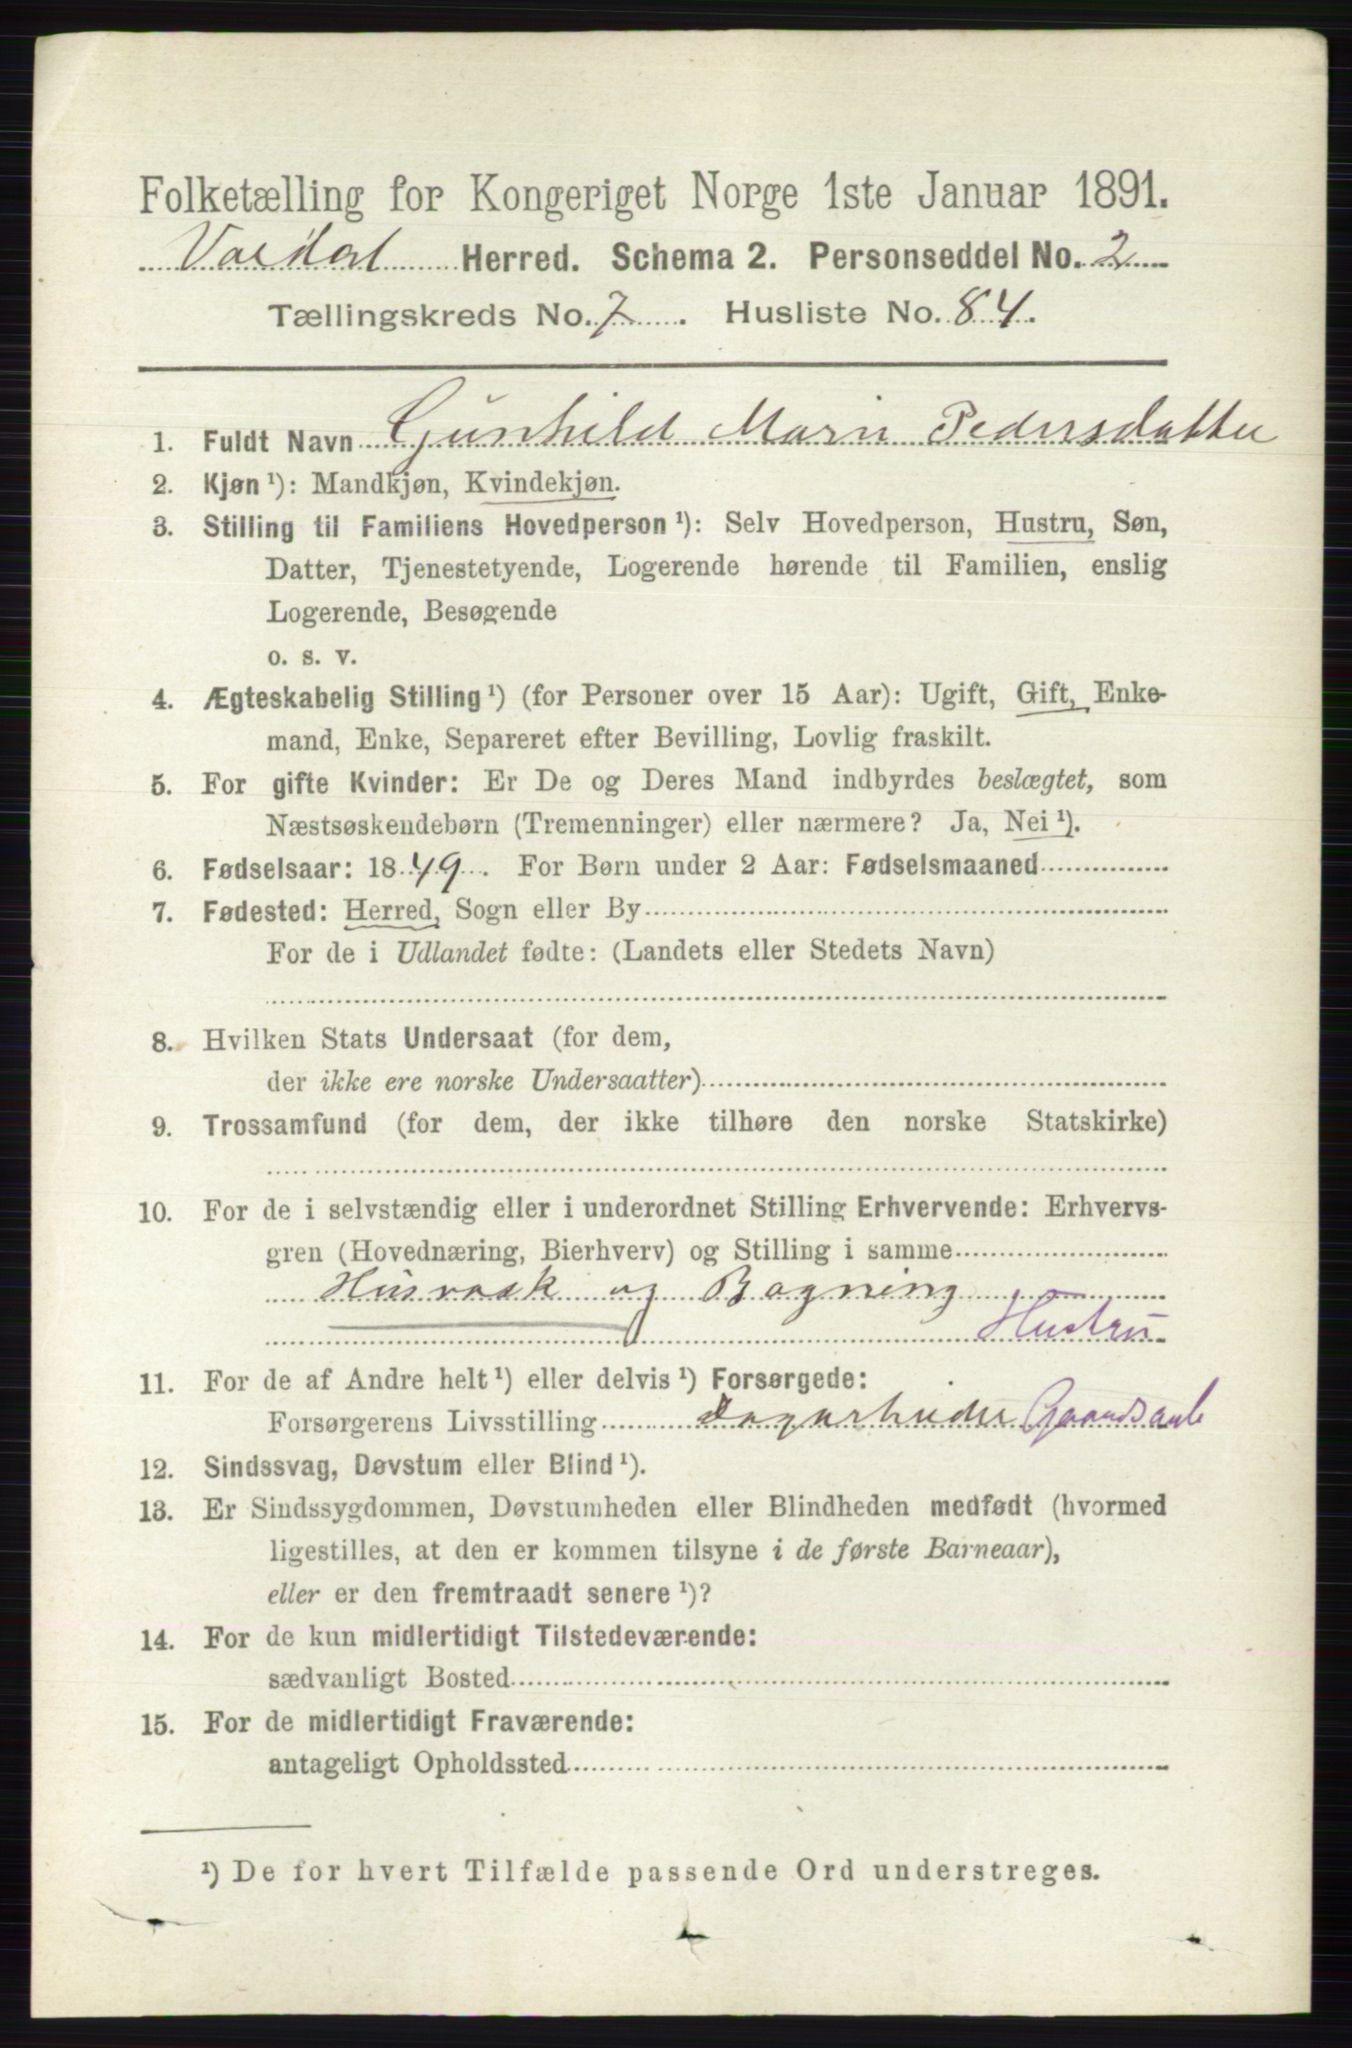 Folketælling for Kongeriget Norge 1ste Januar 1891.
Vardal Herred. Schema 2. Personseddel No. 2
Tællingskreds No. 7. Husliste No. 84.
1. Fuldt Navn Gunhild Marie Pedersdatter
2. Kjøn ¹): Mandkjøn, Kvindekjøn.
3. Stilling til Familiens Hovedperson ¹): Selv Hovedperson, Hustru, Søn,
Datter, Tjenestetyende, Logerende hørende til Familien, enslig
Logerende, Besøgende
o. s. v.
4. Ægteskabelig Stilling ¹) (for Personer over 15 Aar): Ugift, Gift, Enke-
mand, Enke, Separeret efter Bevilling, Lovlig fraskilt.
5. For gifte Kvinder: Er De og Deres Mand indbyrdes beslægtet, som
Næstsøskendebørn (Tremenninger) eller nærmere? Ja, Nei ¹).
6. Fødselsaar: 1849. For Børn under 2 Aar: Fødselsmaaned
7. Fødested: Herred, Sogn eller By
For de i Udlandet fødte: (Landets eller Stedets Navn)
8. Hvilken Stats Undersaat (for dem,
der ikke ere norske Undersaatter)
9. Trossamfund (for dem, der ikke tilhøre den norske Statskirke)
10. For de i selvstændig eller i underordnet Stilling Erhvervende: Erhvervs-
gren (Hovednæring, Bierhverv) og Stilling i samme
Husvask og Bagning
Hustru
11. For de af Andre helt ¹) eller delvis ¹) Forsørgede:
Forsørgerens Livsstilling dagarbeider Gaardsarb
12. Sindssvag, Døvstum eller Blind ¹).
13. Er Sindssygdommen, Døvstumheden eller Blindheden medfødt (hvormed
ligestilles, at den er kommen tilsyne i de første Barneaar),
eller er den fremtraadt senere ¹)?
14. For de kun midlertidigt Tilstedeværende:
sædvanligt Bosted
15. For de midlertidigt Fraværende:
antageligt Opholdssted
¹) De for hvert Tilfælde passende Ord understreges.